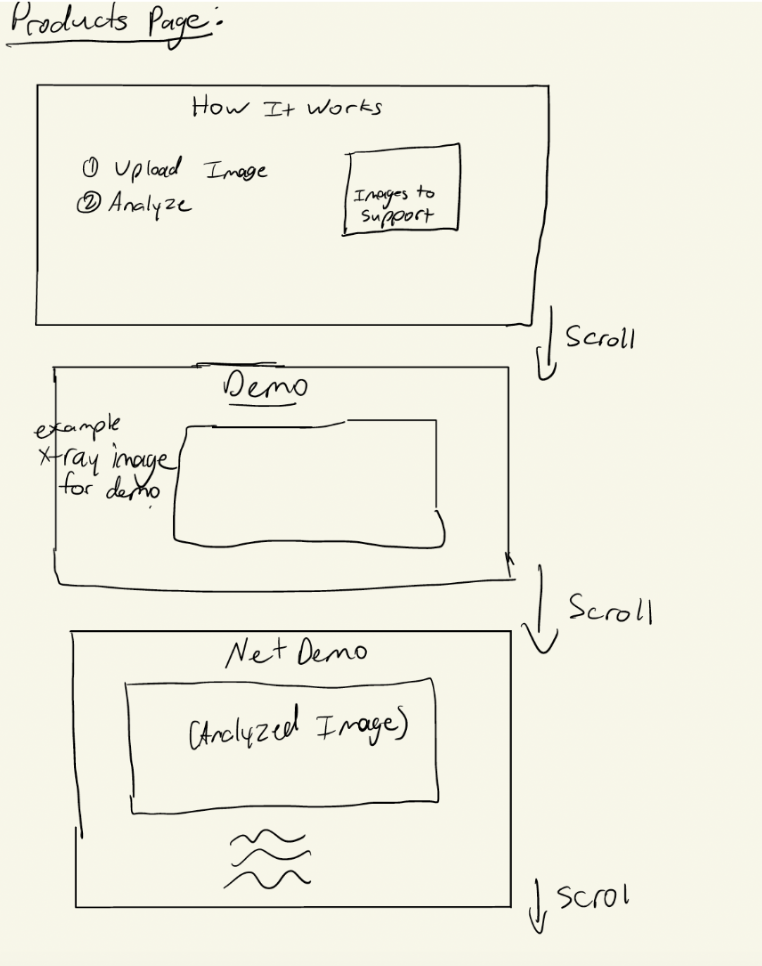 Products Page:
How It Works
① Upload Image
② Analyze
Images to
support
Scroll
Demo
example
X-ray image
for demo
Scroll
Net Demo
(Analyzed Image)
Scrol